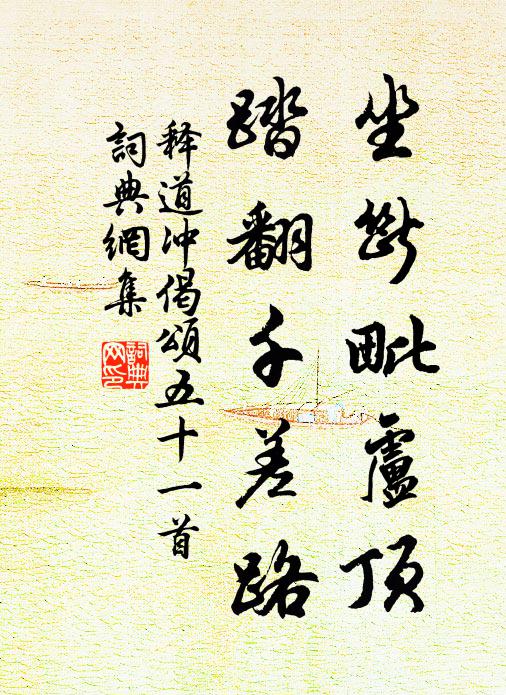 坐断毗盧頂
踏翻千差路
释道冲偈頌五十一首
詞典網集
詞典網印